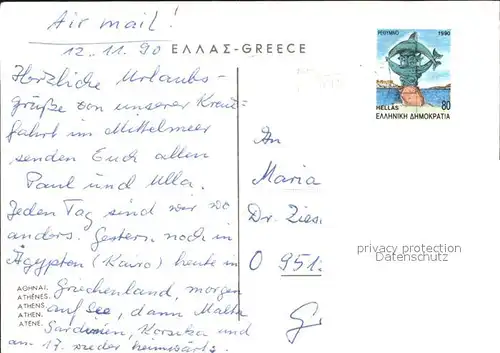 Air mail!
12.11.90
ΕΛΛΑΣ-GREECE
ΡΕΘΥΜΝΟ 1990
HELLAS 80
ΕΛΛΗΝΙΚΗ ΔΗΜΟΚΡΑΤΙΑ
Herzliche Urlaubs-
grüße von unserer Kreuz-
fahrt im Mittelmeer
senden Euch allen
Paul und Ulla.
Jeden Tag sind wir wo
anders. Gestern noch in
Ägypten (Kairo) heute in
Griechenland, morgen
auf See, dann Malta
Sardinien, Korsika und
am 17. wieder heimwärts.
ΑΘΗΝΑΙ.
ATHÈNES.
ATHENS.
ATHEN.
ATENE.
An
Maria
Dr. Zies
O 951
privacy protection
Datenschutz